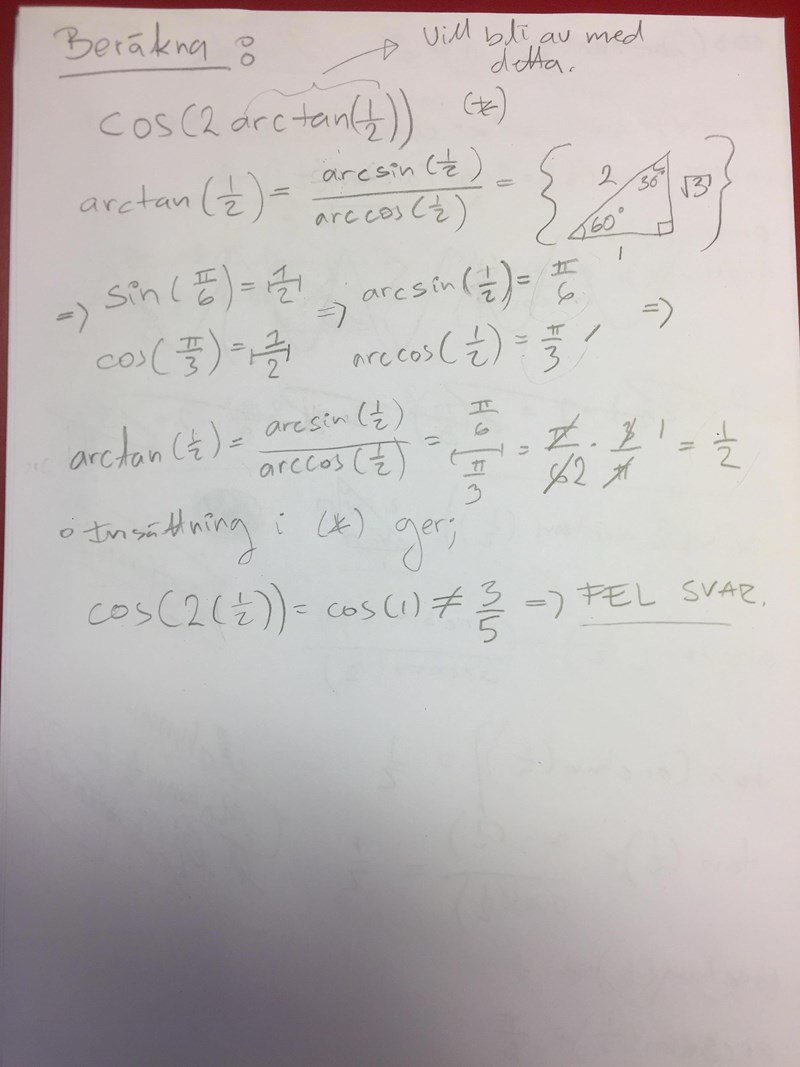 Beräkna :
Vill bli av med
detta.
cos(2 arctan(1/2)) (*)
arctan(1/2) = arcsin(1/2) / arccos(1/2) = { 2 30° √3 60° 1 }
=> sin(π/6) = 1/2 => arcsin(1/2) = π/6 =>
cos(π/3) = 1/2 arccos(1/2) = π/3
arctan(1/2) = arcsin(1/2) / arccos(1/2) = π/6 / π/3 = π/6 2 · 3/π 1 = 1/2
Insättning i (*) ger;
cos(2(1/2)) = cos(1) ≠ 3/5 => FEL SVAR.